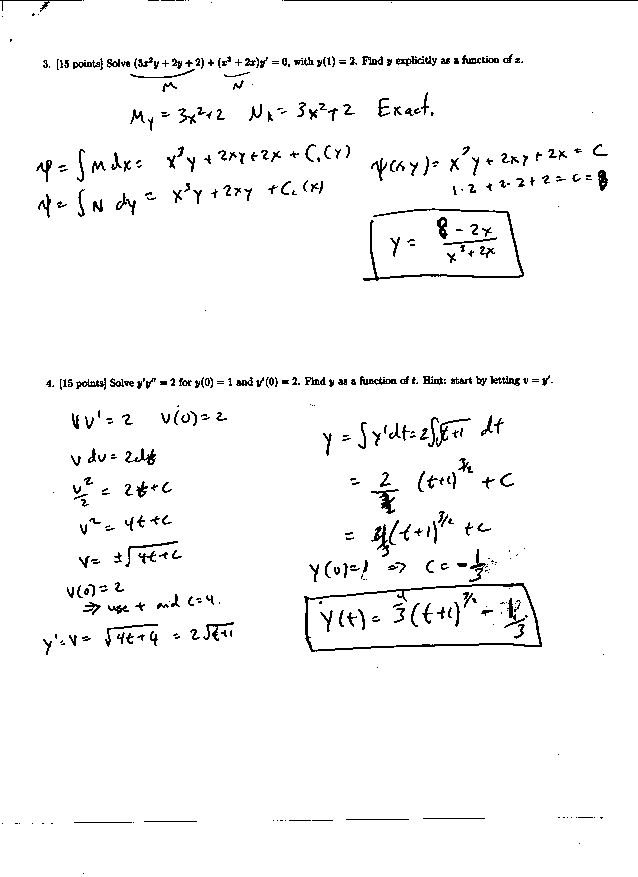 3. [15 points] Solve (3x²y + 2y + 2) + (x³ + 2x)y' = 0, with y(1) = 2. Find y explicitly as a function of x.
M N
My = 3x²+2 Nx = 3x²+2 Exact.
ψ = ∫ M dx = x³y + 2xy + 2x + C₁(y)
ψ = ∫ N dy = x³y + 2xy + C₂(x)
ψ(x,y) = x³y + 2xy + 2x = C
1·2 + 2·2 + 2 = C = 8
y = (8 - 2x)/(x³ + 2x)
4. [15 points] Solve y'y'' = 2 for y(0) = 1 and y'(0) = 2. Find y as a function of t. Hint: start by letting v = y'.
v v' = 2 v(0) = 2
v dv = 2dt
v²/2 = 2t + C
v² = 4t + C
v = ±√(4t + C)
v(0) = 2
⇒ use + and C = 4.
y' = v = √(4t + 4) = 2√(t+1)
y = ∫ y' dt = 2∫√(t+1) dt
= (t+1)^(3/2) + C
= 4/3 (t+1)^(3/2) + C
y(0) = 1 ⇒ C = -1/3
y(t) = 4/3 (t+1)^(3/2) - 1/3